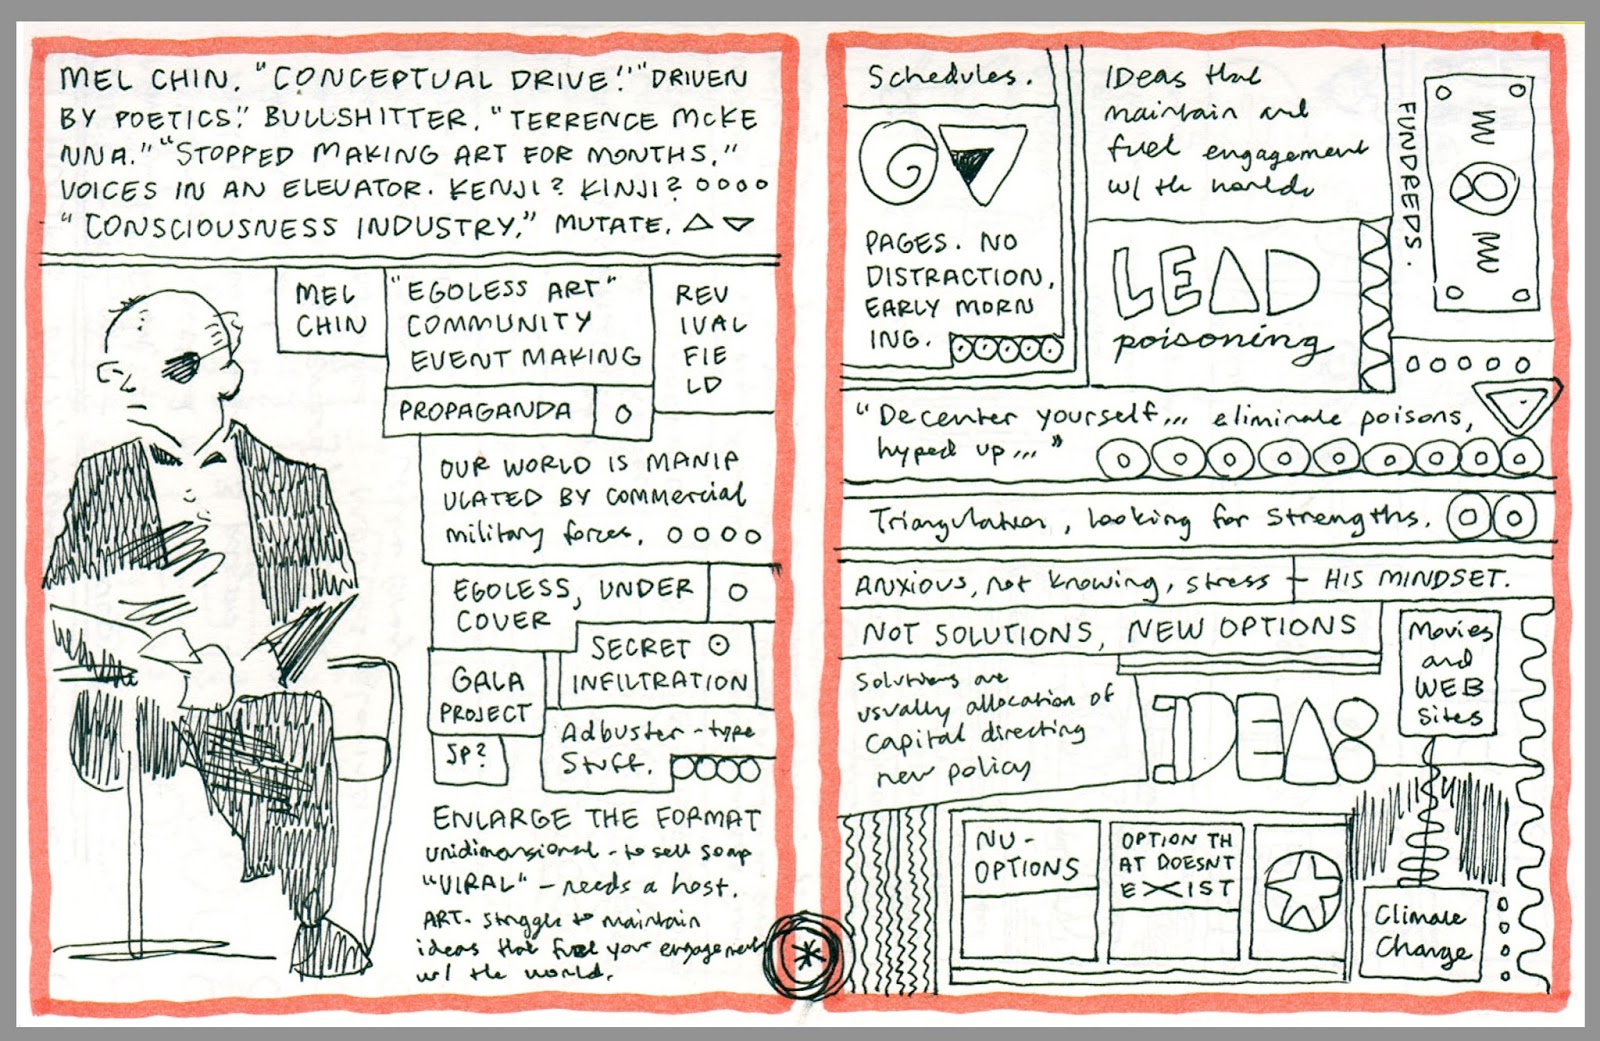 MEL CHIN. "CONCEPTUAL DRIVE!" "DRIVEN
BY POETICS." BULLSHITTER. "TERRENCE MCKE
NNA." "STOPPED MAKING ART FOR MONTHS."
VOICES IN AN ELEVATOR. KENJI? KINJI?
"CONSCIOUSNESS INDUSTRY." MUTATE.
MEL
CHIN
"EGOLESS ART"
COMMUNITY
EVENT MAKING
REV
IVAL
FIE
LD
PROPAGANDA
OUR WORLD IS MANIP
ULATED BY COMMERCIAL
military forces.
EGOLESS, UNDER
COVER
SECRET
INFILTRATION
GALA
PROJECT
JP?
Adbuster-type
Stuff.
ENLARGE THE FORMAT
unidimensional - to sell soap
"VIRAL" - needs a host.
ART - struggle to maintain
ideas that fuel your engagement
w/ the world.
Schedules.
PAGES. NO
DISTRACTION,
EARLY MORN
ING.
IDeas that
maintain and
fuel engagement
w/ the world
FUNDREDS.
100
100
LEAD
poisoning
"Decenter yourself... eliminate poisons,
hyped up..."
Triangulation, looking for strengths.
ANXIOUS, not knowing, stress - HIS MINDSET.
NOT SOLUTIONS, NEW OPTIONS
Solutions are
usually allocation of
capital directing
new policy
IDEAS
Movies
and
WEB
Sites
NU-
OPTIONS
OPTION TH
AT DOESNT
EXIST
Climate
Change